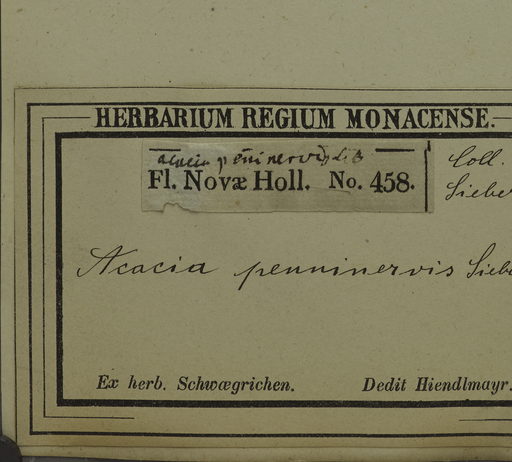 HERBARIUM REGIUM MONACENSE.
acacia penninervis Sieb
Fl. Novæ Holl. No. 458.
Coll.
Sieber
Acacia penninervis Siebe
Ex herb. Schwægrichen. Dedit Hiendlmayr.